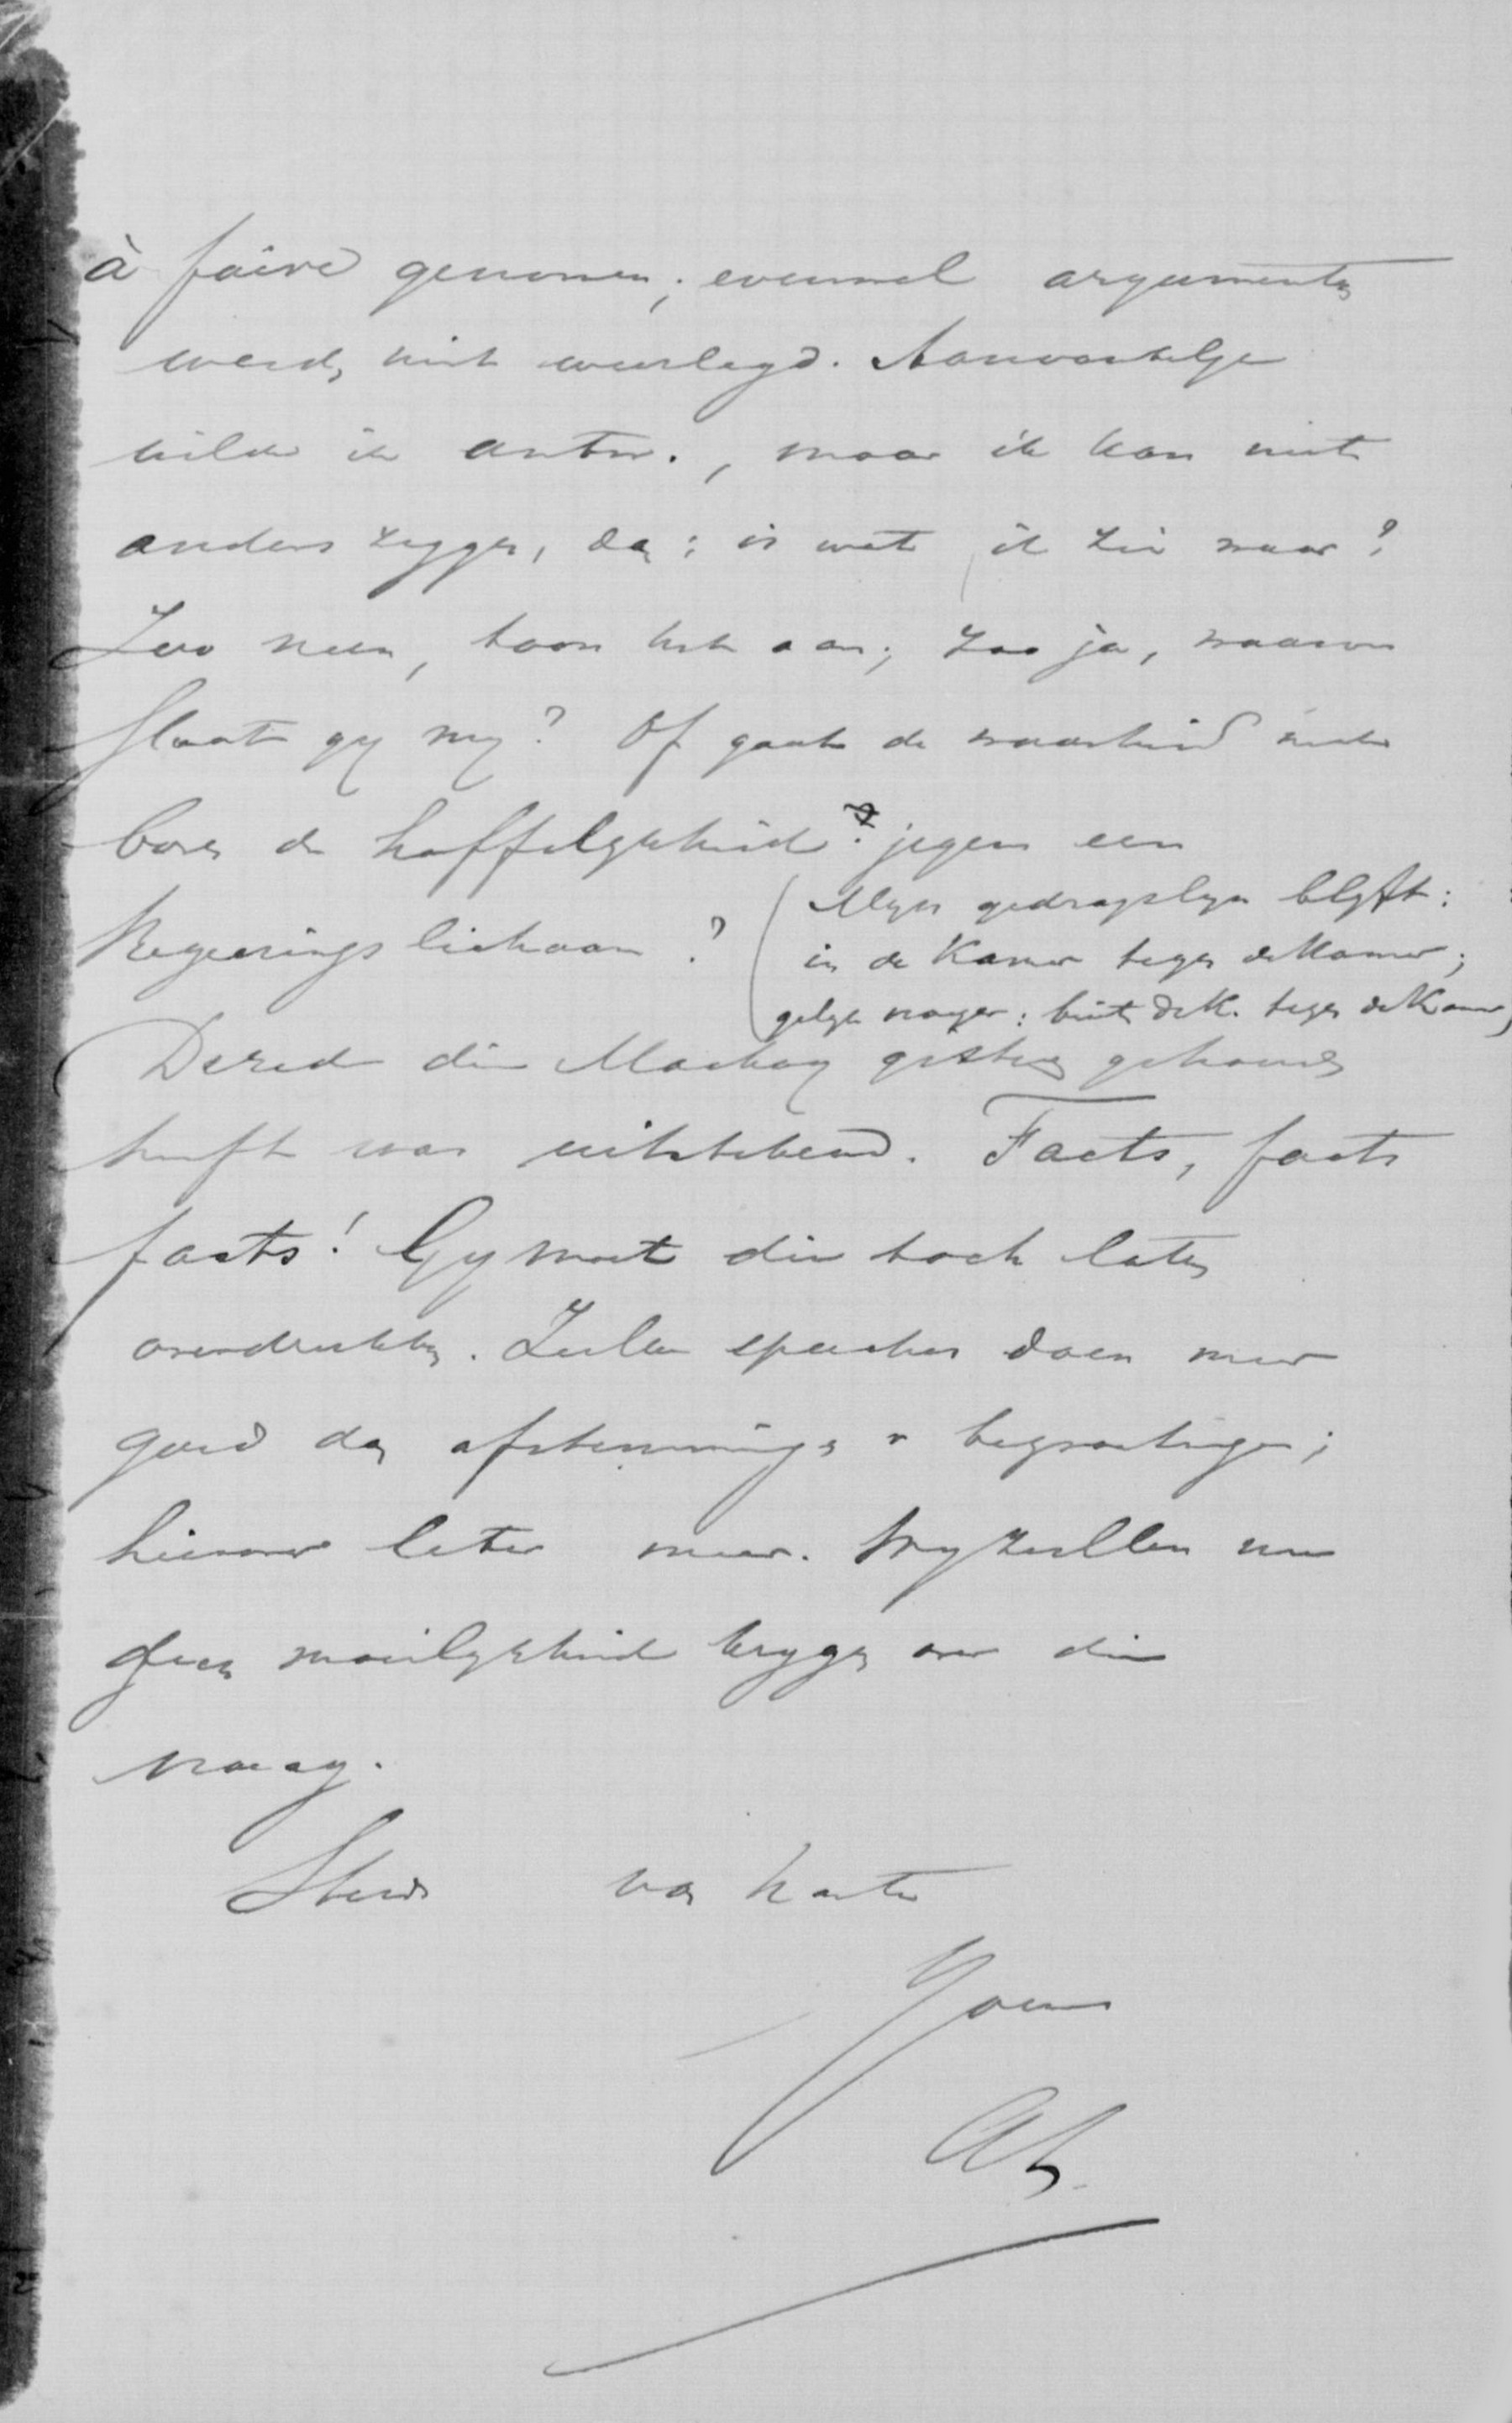 à faire genomen; evenmal argumenten
werden niet weerlegd. Aanvankelijk
wilde ik antw., maar ik kan niet
anders zeggen, dan: is wat ik zei waar?
Zoo neen, toon het aan; zoo ja, waarom
slaat gij mij? Of gaat de waarheid niet
boven de hoffelijkheid? jegens een
Regeeringslichaam?
(Mijn gedragslijn blijft:
in de Kamer tegen de Kamer;
gelijk vroeger: buiten de K. tegen de Kamer)
De rede die Mackay gisteren gehouden
heeft was uitstekend. Facts, facts
facts! Gij moet die toch laten
overdrukken. Zulke speeches doen meer
goed dan afstemmingen v begrootingen;
hierover later meer. Wij zullen nu
geen moeilijkheid krijgen over die
vraag.
Steeds van harte
Yours